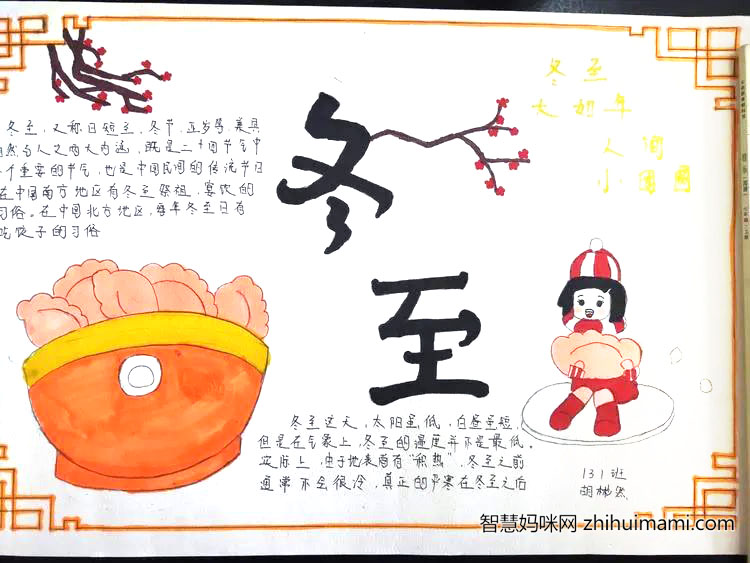 冬至,又称日短至、冬节、亚岁等,兼具
自然与人文两大内涵,既是二十四节气中
个重要的节气,也是中国民间的传统节日
在中国南方地区有冬至祭祖、宴饮的
习俗。在中国北方地区,每年冬至日有
吃饺子的习俗
冬至
冬至
大如年
人间
小团圆
冬至这天,太阳虽低,白昼虽短,
但是在气象上,冬至的温度并不是最低。
实际上,由于地表尚有“积热”,冬至之前
通常不会很冷,真正的严寒在冬至之后
131班
胡彬然
智慧妈咪网 zhihuimami.com